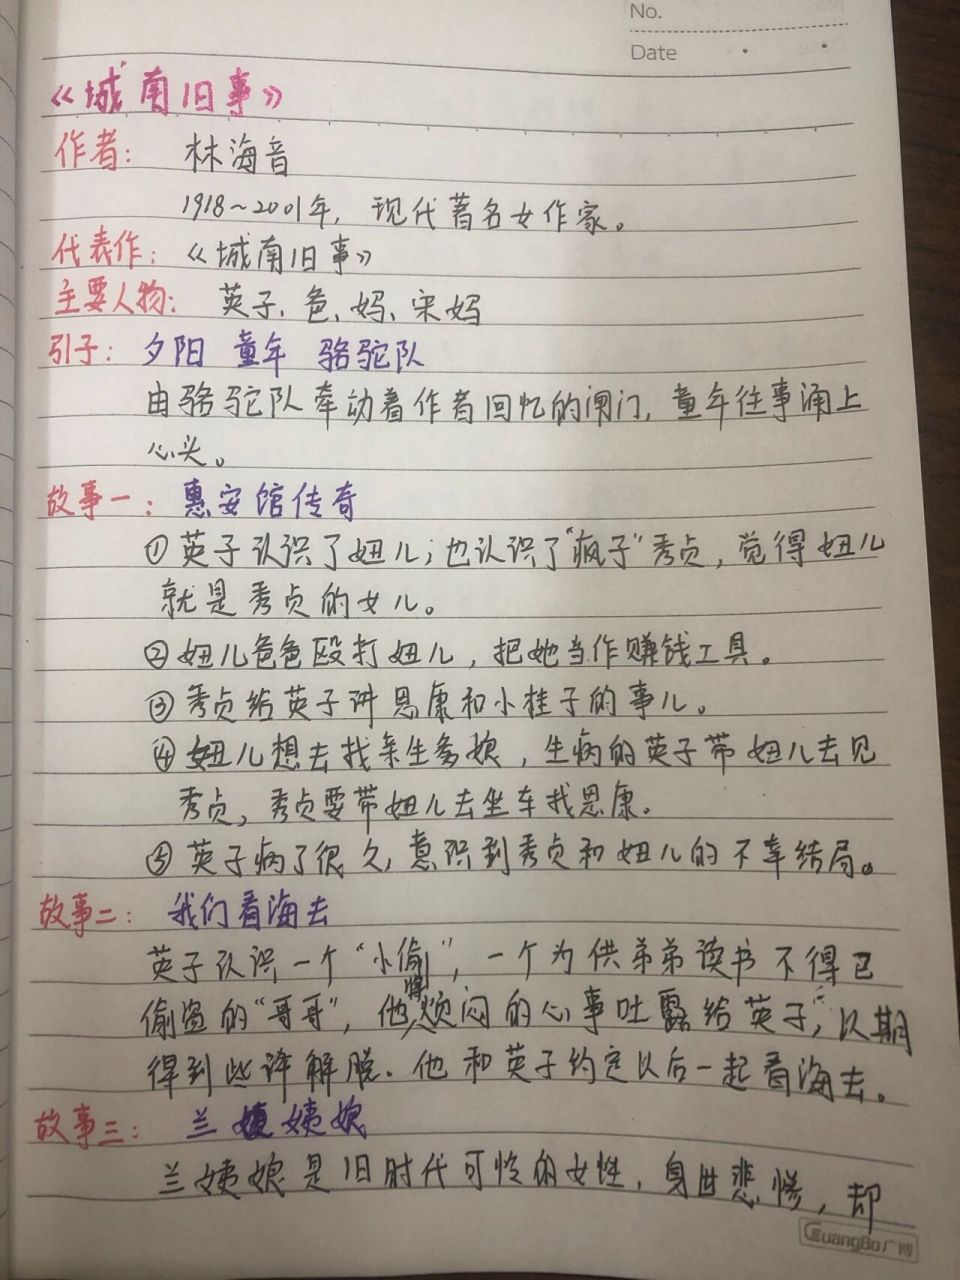 No.
Date
《城南旧事》
作者： 林海音
1918~2001年，现代著名女作家。
代表作：《城南旧事》
主要人物： 英子、爸、妈、宋妈
引子：夕阳 童年 骆驼队
由骆驼队牵动着作者回忆的闸门，童年往事涌上
心头。
故事一：惠安馆传奇
①英子认识了妞儿；也认识了“疯子”秀贞，觉得妞儿
就是秀贞的女儿。
②妞儿爸爸殴打妞儿，把她当作赚钱工具。
③秀贞给英子讲思康和小桂子的事儿。
④妞儿想去找亲生爹娘，生病的英子带妞儿去见
秀贞，秀贞要带妞儿去坐车找思康。
⑤英子病了很久，意识到秀贞和妞儿的不幸结局。
故事二：我们看海去
英子认识一个“小偷”，一个为供弟弟读书不得已
偷盗的“哥哥”，他将烦闷的心事吐露给英子，以期
得到些许解脱。他和英子约定以后一起看海去。
故事三：兰姨娘
兰姨娘是旧时代可怜的女性，身世悲惨，却
GuangBo广博